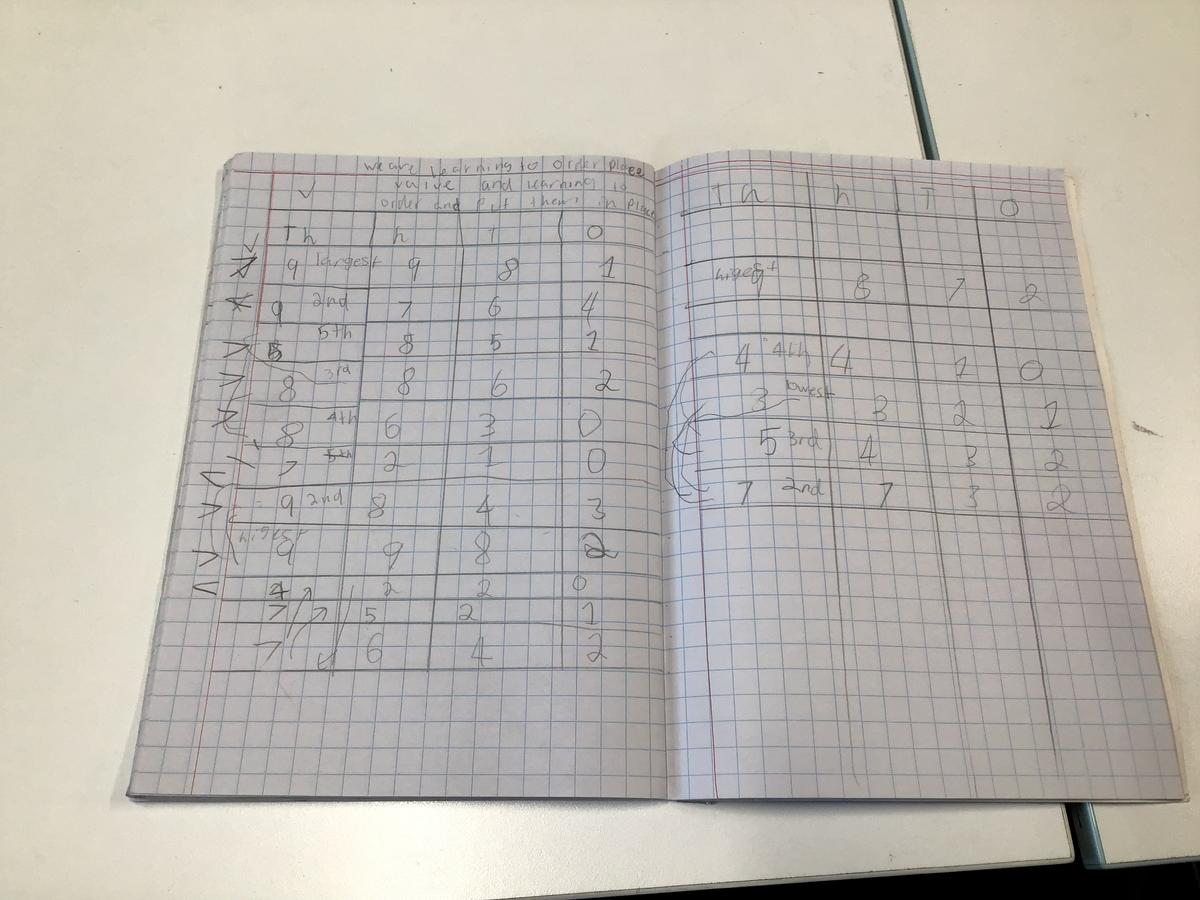 we are learning to order place
valve and learning to
order and put them in place
Th h T O
9 largest 9 8 1
9 2nd 7 6 4
5 5th 8 5 1
8 3rd 8 6 2
8 4th 6 3 0
7 5th 2 1 0
9 2nd 8 4 3
higest
9 9 8 2
7 2 2 0
7 5 2 1
7 6 4 2
Th h T O
higest 9 8 7 2
4 4th 4 1 0
3 lowest 3 2 1
5 3rd 4 3 2
7 2nd 7 3 2